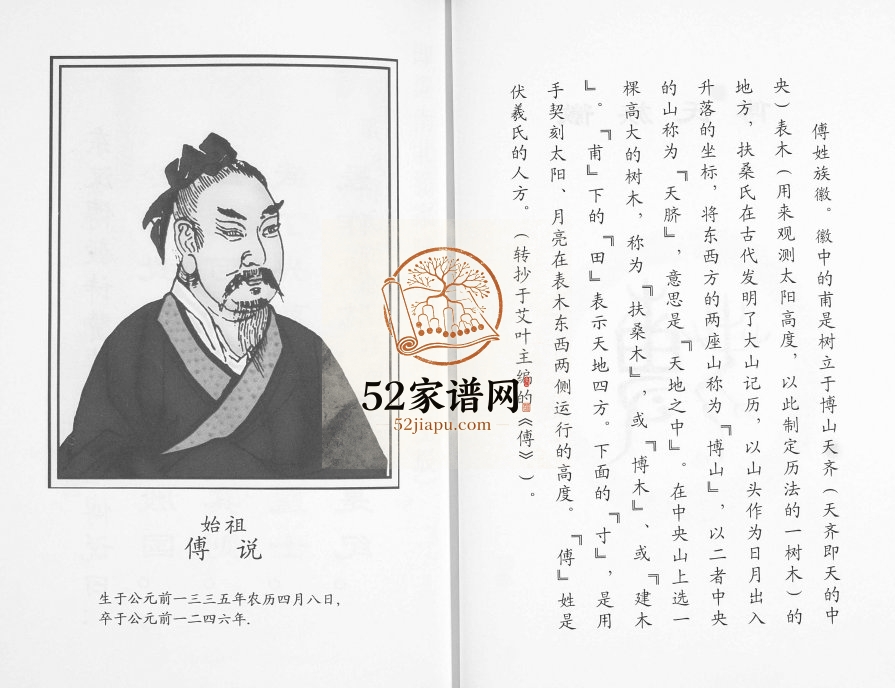 傅姓族徽。徽中的甫是树立于博山天齐（天齐即天的中
央）表木（用来观测太阳高度，以此制定历法的一树木）的
地方，扶桑氏在古代发明了大山记历，以山头作为日月出入
升落的坐标，将东西方的两座山称为『博山』，以二者中央
的山称为『天脐』，意思是『天地之中』。在中央山上选一
棵高大的树木，称为『扶桑木』，或『博木』、或『建木
』。『甫』下的『田』表示天地四方。下面的『寸』，是用
手契刻太阳、月亮在表木东西两侧运行的高度。『傅』姓是
伏羲氏的人方。（转抄于艾叶主编的《傅》）。
始祖
傅 说
生于公元前一三三五年农历四月八日，
卒于公元前一二四六年.
52家谱网
52jiapu.com